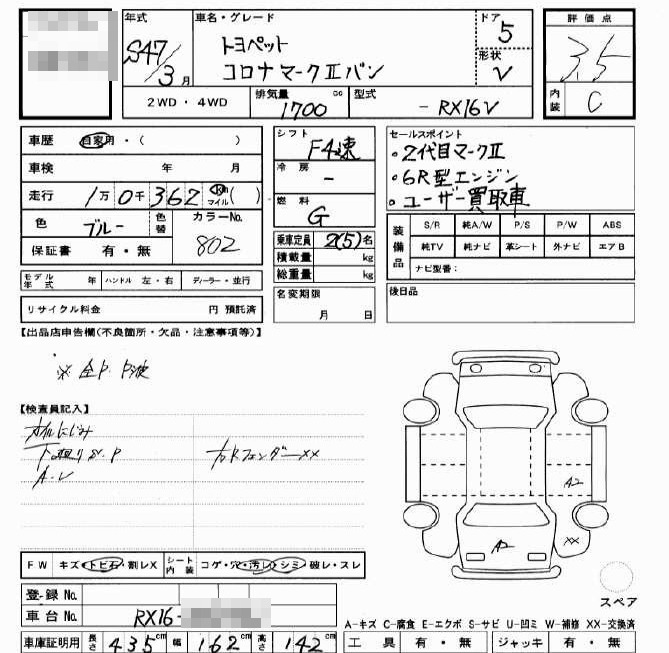 年式 車名・グレード ドア 評価点
S47/3月 トヨペット 5 3.5
コロナマークⅡバン 形状 V
2WD・4WD 排気量 1700 cc 型式 -RX16V 内装 C
車歴 自家用・( ) シフト F4速 セールスポイント
車検 年 月 冷房 - ・2代目マークⅡ
走行 1万0千362 Km マイル ( ) ・6R型エンジン
燃料 G ・ユーザー買取車
色 ブルー 色替 カラーNo. 802
保証書 有・無
乗車定員 2(5)名
積載量 kg
総重量 kg
装備品 S/R 純A/W P/S P/W ABS
純TV 純ナビ 革シート 外ナビ エアB
ナビ型番:
モデル年式 年 ハンドル 左・右 ディーラー・並行
名変期限 月 日
後日品
リサイクル料金 円 預託済
【出品店申告欄(不良箇所・欠品・注意事項等)】
【検査員記入】
A・V
右Rフェンダー××
A2
××
A2
FW キズ・トビ石・割レX シート内装 コゲ・穴・汚レ・シミ・破レ・スレ
スペア
登録No.
車台No. RX16-
A-キズ C-腐食 E-エクボ S-サビ U-凹ミ W-補修 XX-交換済
車庫証明用 長さ 435cm 幅 162cm 高さ 142cm 工具 有・無 ジャッキ 有・無